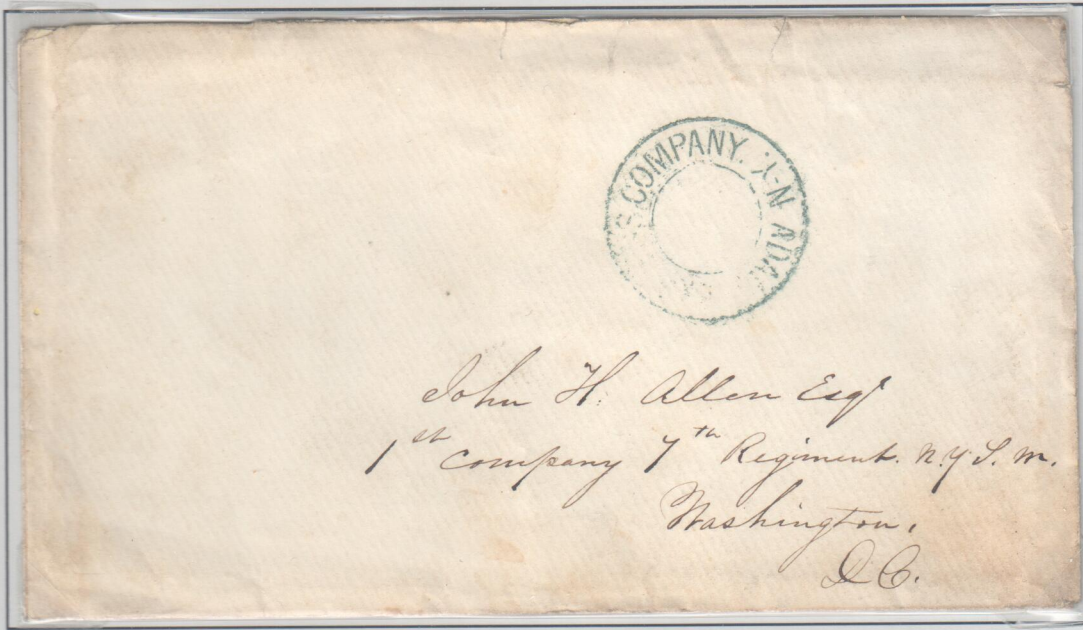 COMPANY. N-Y ADA
John H. Allen Esqr
1st Company 7th Regiment. N.Y.S.M.
Washington,
D.C.